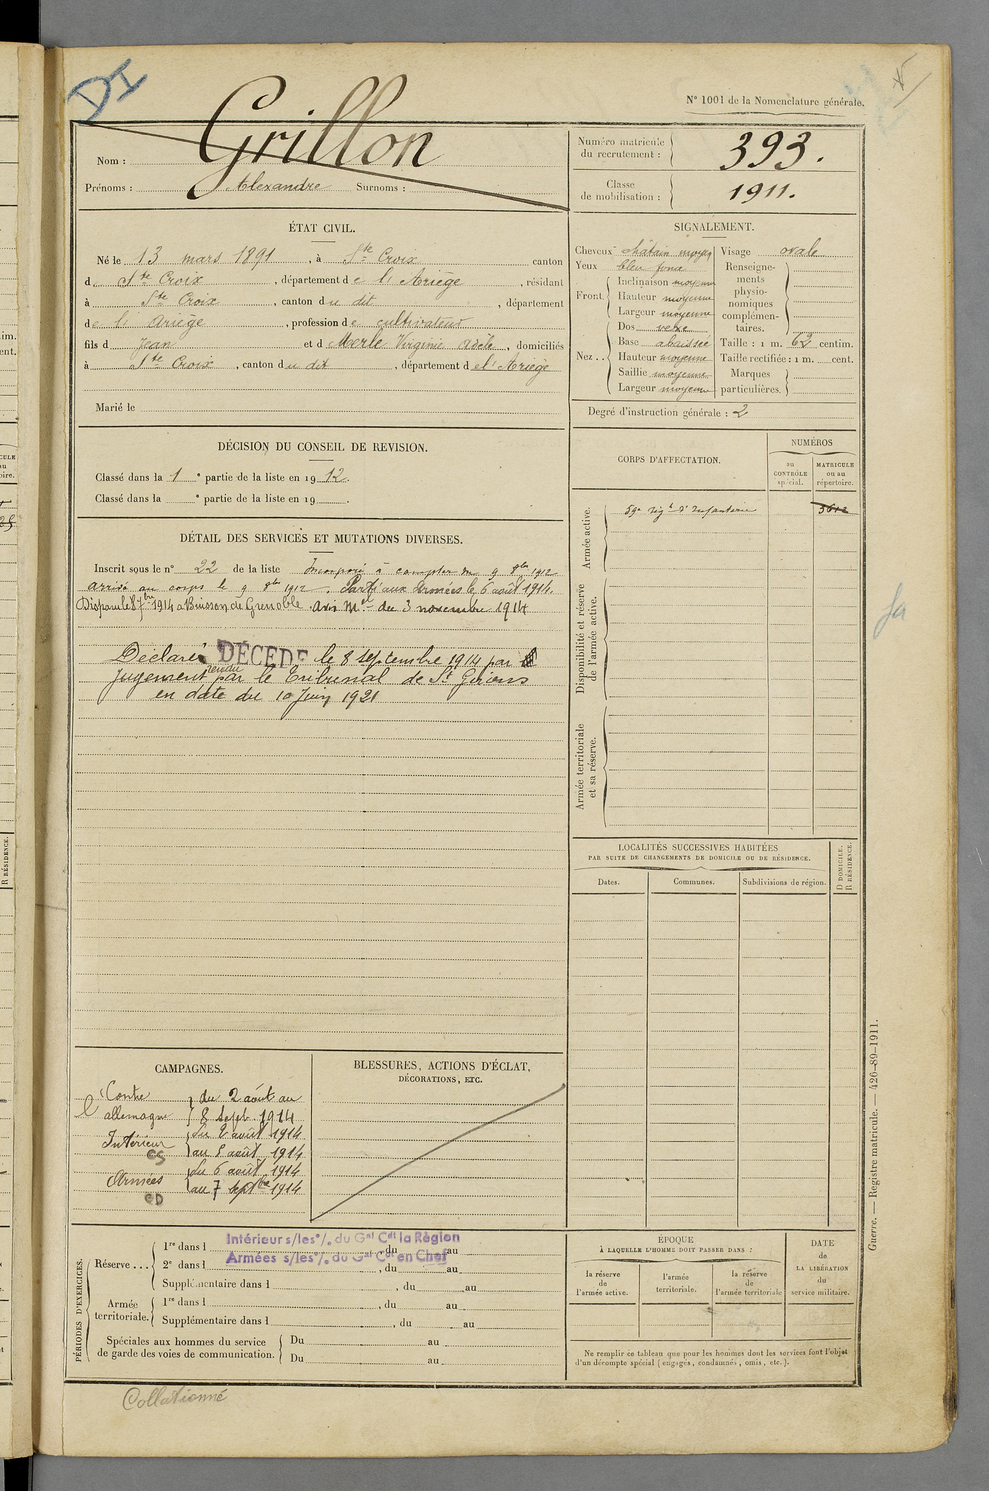 DI
N° 1001 de la Nomenclature générale.
Nom : Grillon
Prénoms : Alexandre Surnoms :
Numéro matricule du recrutement : 393.
Classe de mobilisation : 1911.
ÉTAT CIVIL.
Né le 13 mars 1891, à Ste Croix canton
d Ste Croix, département de l'Ariège, résidant
à Ste Croix, canton du dit, département
de l'Ariège, profession de cultivateur
fils d Jean et d Merle Virginie Adèle, domiciliés
à Ste Croix, canton du dit, département de l'Ariège
Marié le
SIGNALEMENT.
Cheveux châtain moyen
Yeux bleu foncé
Front Inclinaison moyenne
Hauteur moyenne
Largeur moyenne
Nez Dos vexe
Base abaissée
Hauteur moyenne
Saillie moyenne
Largeur moyenne
Visage ovale
Renseignements physionomiques complémentaires.
Taille : 1 m. 62 centim.
Taille rectifiée : 1 m. cent.
Marques particulières.
Degré d'instruction générale : 2
DÉCISION DU CONSEIL DE REVISION.
Classé dans la 1e partie de la liste en 1912.
Classé dans la e partie de la liste en 19 .
DÉTAIL DES SERVICES ET MUTATIONS DIVERSES.
Inscrit sous le n° 22 de la liste Incorporé à compter du 9 8bre 1912
arrivé au corps le 9 8bre 1912. Parti aux Armées le 6 août 1914.
Disparu le 8 7bre 1914 à Buisson de Grenoble. Avis Mel du 3 novembre 1914
Déclaré DÉCÉDÉ le 8 septembre 1914 par
jugement rendu par le Tribunal de St Girons
en date du 10 Juin 1921
CORPS D'AFFECTATION.
NUMÉROS
au CONTRÔLE spécial.
MATRICULE ou au répertoire.
Armée active.
59e régt d'Infanterie 3612
Disponibilité et réserve de l'armée active.
Armée territoriale et sa réserve.
LOCALITÉS SUCCESSIVES HABITÉES
PAR SUITE DE CHANGEMENTS DE DOMICILE OU DE RÉSIDENCE.
Dates.
Communes.
Subdivisions de région.
D DOMICILE.
R RÉSIDENCE.
CAMPAGNES.
Contre l'allemagne du 2 août au 8 Sept. 1914
Intérieur CS du 2 août 1914 au 5 août 1914
Armées CD du 6 août 1914 au 7 septbre 1914
BLESSURES, ACTIONS D'ÉCLAT,
DÉCORATIONS, ETC.
PÉRIODES D'EXERCICES.
Réserve ... 1re dans l , du au
2e dans l , du au
Intérieur s/les °/. du Gal Cdt la Région
Armées s/les °/. du Gal Cdt en Chef
Supplémentaire dans l , du au
Armée territoriale. 1re dans l , du au
Supplémentaire dans l , du au
Spéciales aux hommes du service de garde des voies de communication. Du au
Du au
ÉPOQUE
À LAQUELLE L'HOMME DOIT PASSER DANS :
la réserve de l'armée active.
l'armée territoriale.
la réserve de l'armée territoriale
DATE DE LA LIBÉRATION du service militaire.
Ne remplir ce tableau que pour les hommes dont les services font l'objet
d'un décompte spécial (engagés, condamnés, omis, etc.).
Guerre. — Registre matricule. — 426-89-1911.
Collationné